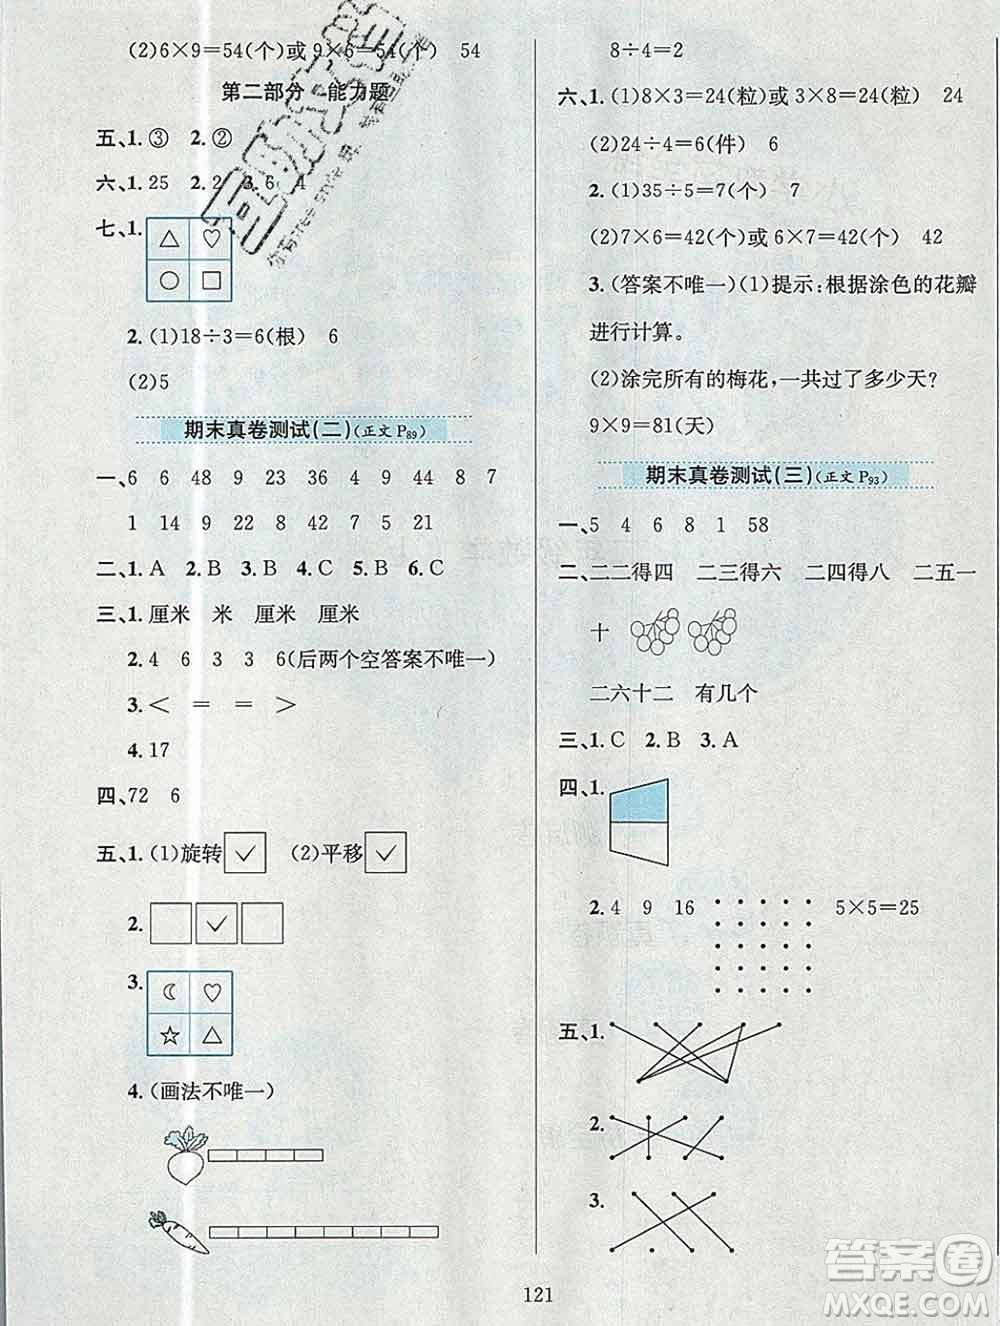 (2)6×9=54(个)或 9×6=54(个)　54
第二部分　能力题
五、1. ③　2. ②
六、1. 25　2. 2　3. 6　4
七、1.
2. (1)18÷3=6(根)　6
(2)5
期末真卷测试(二)(正文 P89)
一、6　6　48　9　23　9　4　44　8　7
1　14　9　22　9　7　5　21
二、1. A　2. B　3. C　4. A　5. B　6. C
三、1. 厘米　米　厘米　厘米
2. 4　6　3　3　6(后两个空答案不唯一)
3. <　=　=　>
4. 17
四、72　6
五、1. (1)旋转 ✓　(2)平移 ✓
2. ✓
3.
4. (画法不唯一)
8÷4=2
六、1. (1)8×3=24(粒)或 3×8=24(粒)　24
(2)24÷4=6(件)　6
2. (1)35÷5=7(个)　7
(2)7×6=42(个)或 6×7=42(个)　42
3. (答案不唯一)(1)提示:根据涂色的花瓣
进行计算。
(2)涂完所有的梅花,一共过了多少天?
9×9=81(天)
期末真卷测试(三)(正文 P93)
一、5　4　6　8　1　58
二、二二得四　二三得六　二四得八　二五一
十
二六十二　有几个
三、1. C　2. B　3. A
四、1.
2. 4　9　16　5×5=25
五、1.
2.
3.
121
答案圈
MXQE.COM